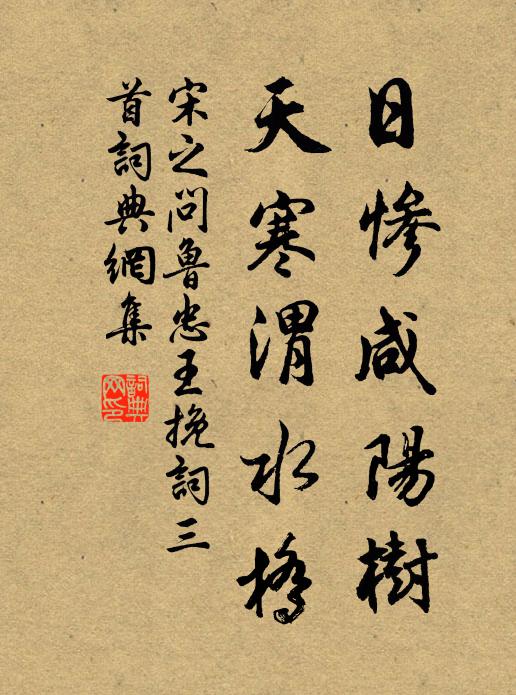 日慘咸陽樹
天寒渭水橋
宋之問魯忠王挽詞三
首詞典網集
詞典
网印